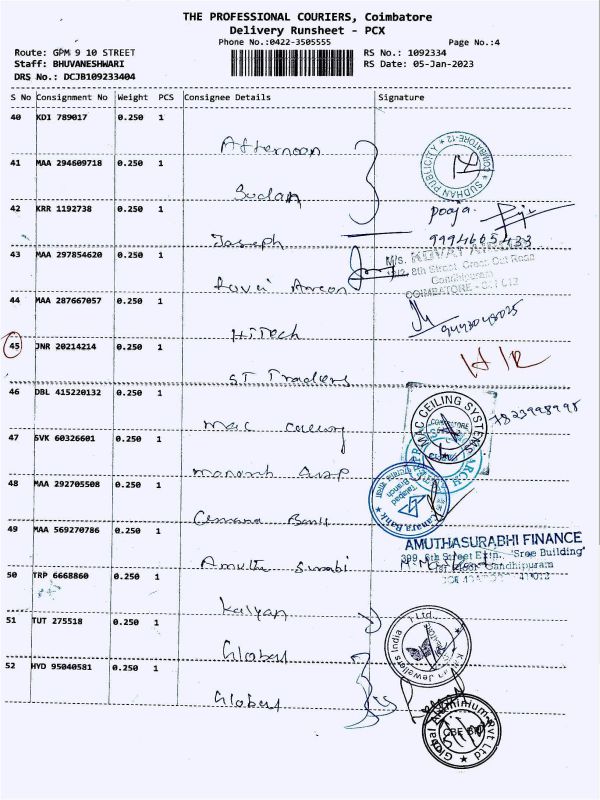 THE PROFESSIONAL COURIERS, Coimbatore
Delivery Runsheet - PCX
Phone No.:0422-3505555 Page No.:4
Route: GPM 9 10 STREET RS No.: 1092334
Staff: BHUVANESHWARI RS Date: 05-Jan-2023
DRS No.: DCJB109233404
S No Consignment No Weight PCS Consignee Details Signature
40 KDI 789017 0.250 1
Afternoon
SUDHAN PUBLICITY COIMBATORE-12
41 MAA 294609718 0.250 1
Sudan
42 KRR 1192738 0.250 1 pooja
Joseph 9994605433
43 MAA 297854620 0.250 1 M/s. KOVAI
8th Street, Cross Cut Road
Gandhipuram
COIMBATORE - 641 012
44 MAA 287667057 0.250 1
HiTech
45 JNR 20214214 0.250 1
ST Traders
46 DBL 415220132 0.250 1
Mac MAC CEILING SYSTEMS
47 SVK 60326601 0.250 1
48 MAA 292705508 0.250 1
Canara Bank Canara Bank
49 MAA 569270786 0.250 1 AMUTHASURABHI FINANCE
Street Extn., "Sree Building"
Amutha Surabi Gandhipuram
50 TRP 6668860 0.250 1
Kalyan
51 TUT 275518 0.250 1 Jewellers India Ltd.
Global
52 HYD 95040581 0.250 1
Global
Global Aluminium Pvt Ltd
CBE